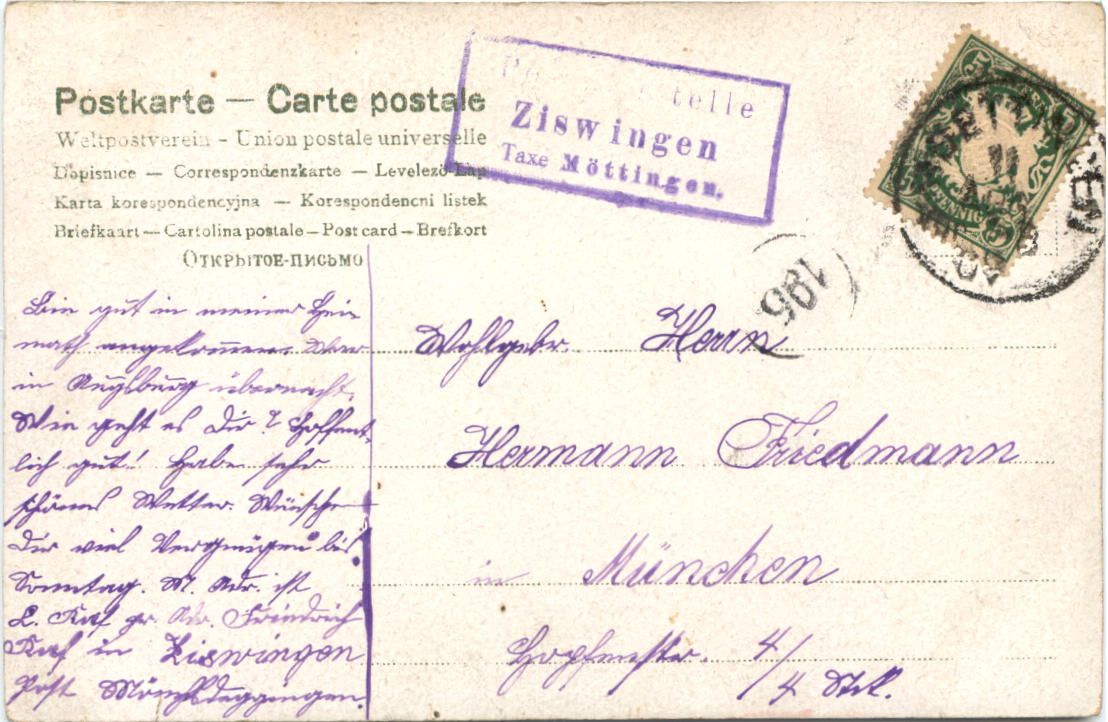 Postkarte — Carte postale
Weltpostverein - Union postale universelle
Dopisnice — Correspondenzkarte — Levelező-Lap
Karta korespondencyjna — Korespondencni listek
Briefkaart — Cartolina postale — Post card — Brefkort
Открытое-письмо
telle
Ziswingen
Taxe Möttingen.
5
PFENNIG
5
195
Bin gut in meiner Hei
math angekommen. War
in Augsburg übernacht.
Wie geht es Dir? Hoffent
lich gut! Habe sehr
schönes Wetter. Wünsche
Dir viel Vergnügen bis
Sonntag. M. Adr. ist
L. gr. Adr. Friedrich
in Ziswingen
Post Mönchsdeggingen.
Wohlgebr. Herrn
Hermann Friedmann
in München
Hopfenstr. 4/
4 Stk.